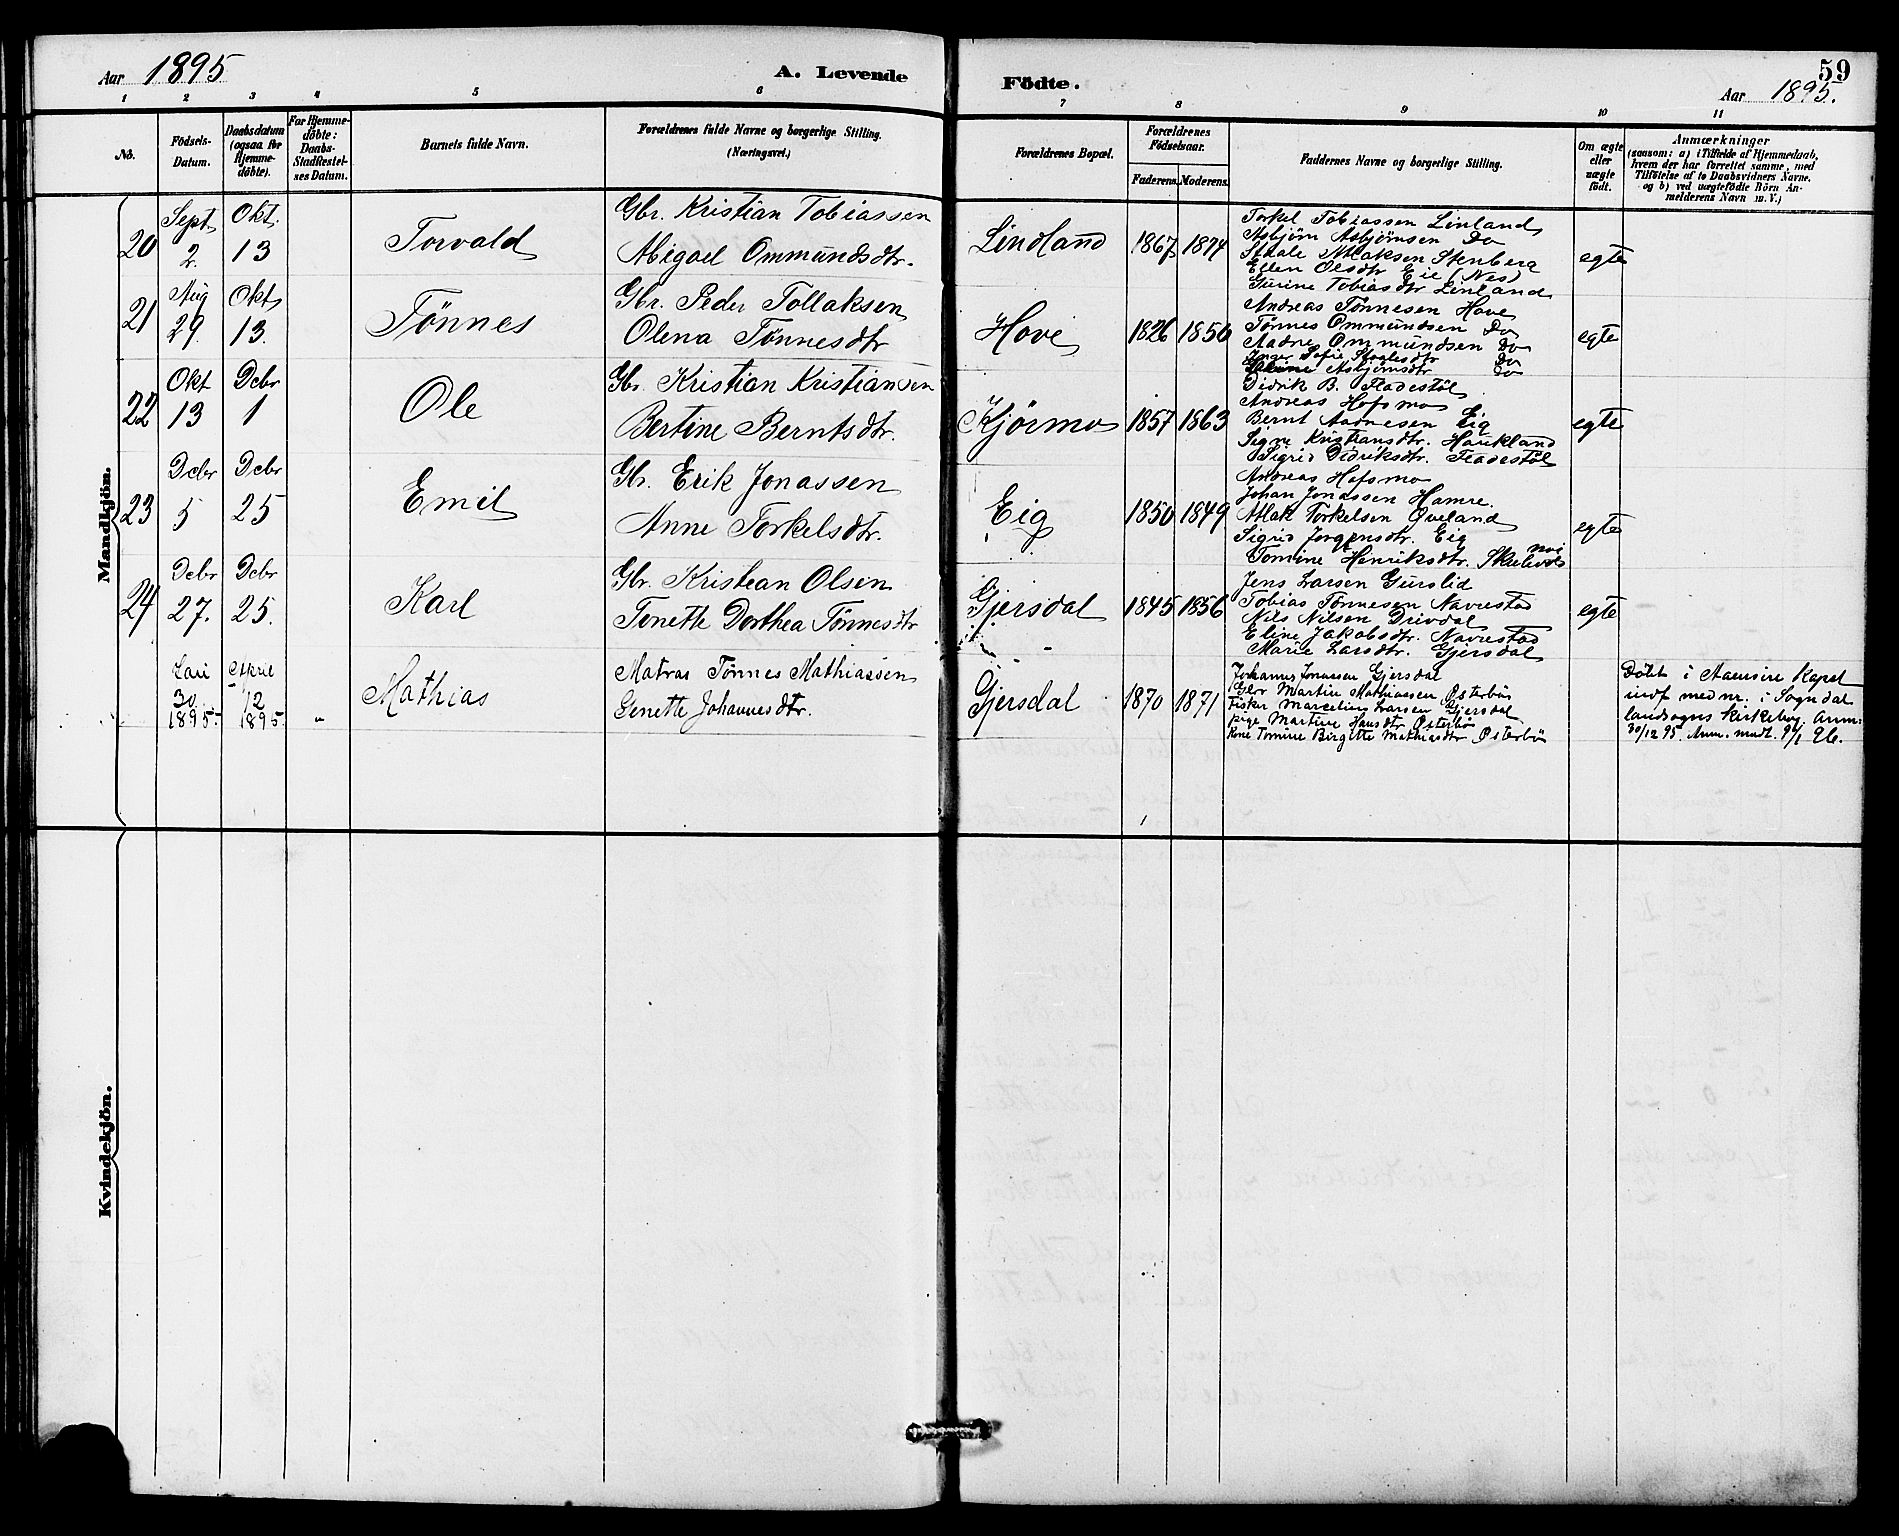 Aar 1895
A. Levende
Födte.
59
Aar 1895.
1 2 3 4 5 6 7 8 9 10 11
No.
Födsels-
Datum.
Daabsdatum
(ogsaa for
Hjemme-
döbte).
For Hjemme-
döbte:
Daabs-
Stadfestel-
ses Datum.
Barnets fulde Navn.
Forældrenes fulde Navne og borgerlige Stilling.
(Næringsvei.)
Forældrenes Bopæl.
Forældrenes
Födselsaar.
Faderens. Moderens.
Faddernes Navne og borgerlige Stilling.
Om ægte
eller
uægte
födt.
Anmærkninger
(saasom: a) i Tilfælde af Hjemmedaab,
hvem der har forrettet samme, med
Tilföielse af to Daabsvidners Navne.
og b) ved uægtefödte Börn An-
melderens Navn m. V.)
Mandkjön.
20
Sept
2.
Okt.
13
Torvald
Gbr. Kristian Tobiassen
Abigael Ommundsdtr.
Lindland
1867 1874
Torkel Tobiassen Linland
Asbjörn Asbjörnsen Do
Staale Atlaksen Stenberg
Ellen Olsdtr Eie (Nes)
Gurine Tobiasdtr Linland
egte
21
Aug
29.
Okt
13.
Tönnes
Gbr. Peder Tollaksen
Olena Tönnesdtr
Hove
1826 1850
Andreas Tönnesen Hove
Tönnes Ommundsen Do
Aadne Ommundsen Do
Inger Sofie Staalesdtr Do
Asbjörnsdtr Do
egte
22
Okt
13
Dcbr
1
Ole
Gbr. Kristian Kristiansen
Bertine Berntsdtr.
Kjörmo
1857 1863
Didrik B. Fladestöl
Andreas Hofsmo
Bernt Aadnesen Eig
Signe Kristiansdtr. Haukland
Sigrid Didriksdtr. Fladestöl
egte
23
Dcbr
5
Dcbr
25
Emil
Gbr. Erik Jonassen
Anne Torkelsdtr.
Eig
1850 1849
Andreas Hofsmo
Johan Jonassen Hamre.
Atlak Torkelsen Qveland
Sigrid Jörgensdtr. Eig
Tomine Henriksdtr.
egte
24
Dcbr
27.
Dcbr
25.
Karl
Gbr. Kristean Olsen
Tonette Dorthea Tönnesdtr
Gjersdal
1845 1856
Jens Larsen Gurslid
Tobias Tönnesen Navrestad
Nils Nilsen Drivdal
Eline Jakobsdtr. Navrestad
Marie Larsdtr. Gjersdal
egte
30
1895.
April
12
1895.
"
Mathias
Matros Tönnes Mathiassen
Genette Johannesdtr.
Gjersdal
1870 1871
Johannes Jonassen Gjersdal
Gbr Martin Mathiassen Österbö
Fisker Marcelius Larsen Gjersdal
Pige Martine Hansdtr Österbö
Kone Tomine Birgitte Mathiasdtr Österbö
Döbt i Aaensire Kapel
indf med nr. i Sogndal
landsogns kirkebog. Anm:
30/12 95. Anm. modt. 9/1 96.
Kvindekjön.